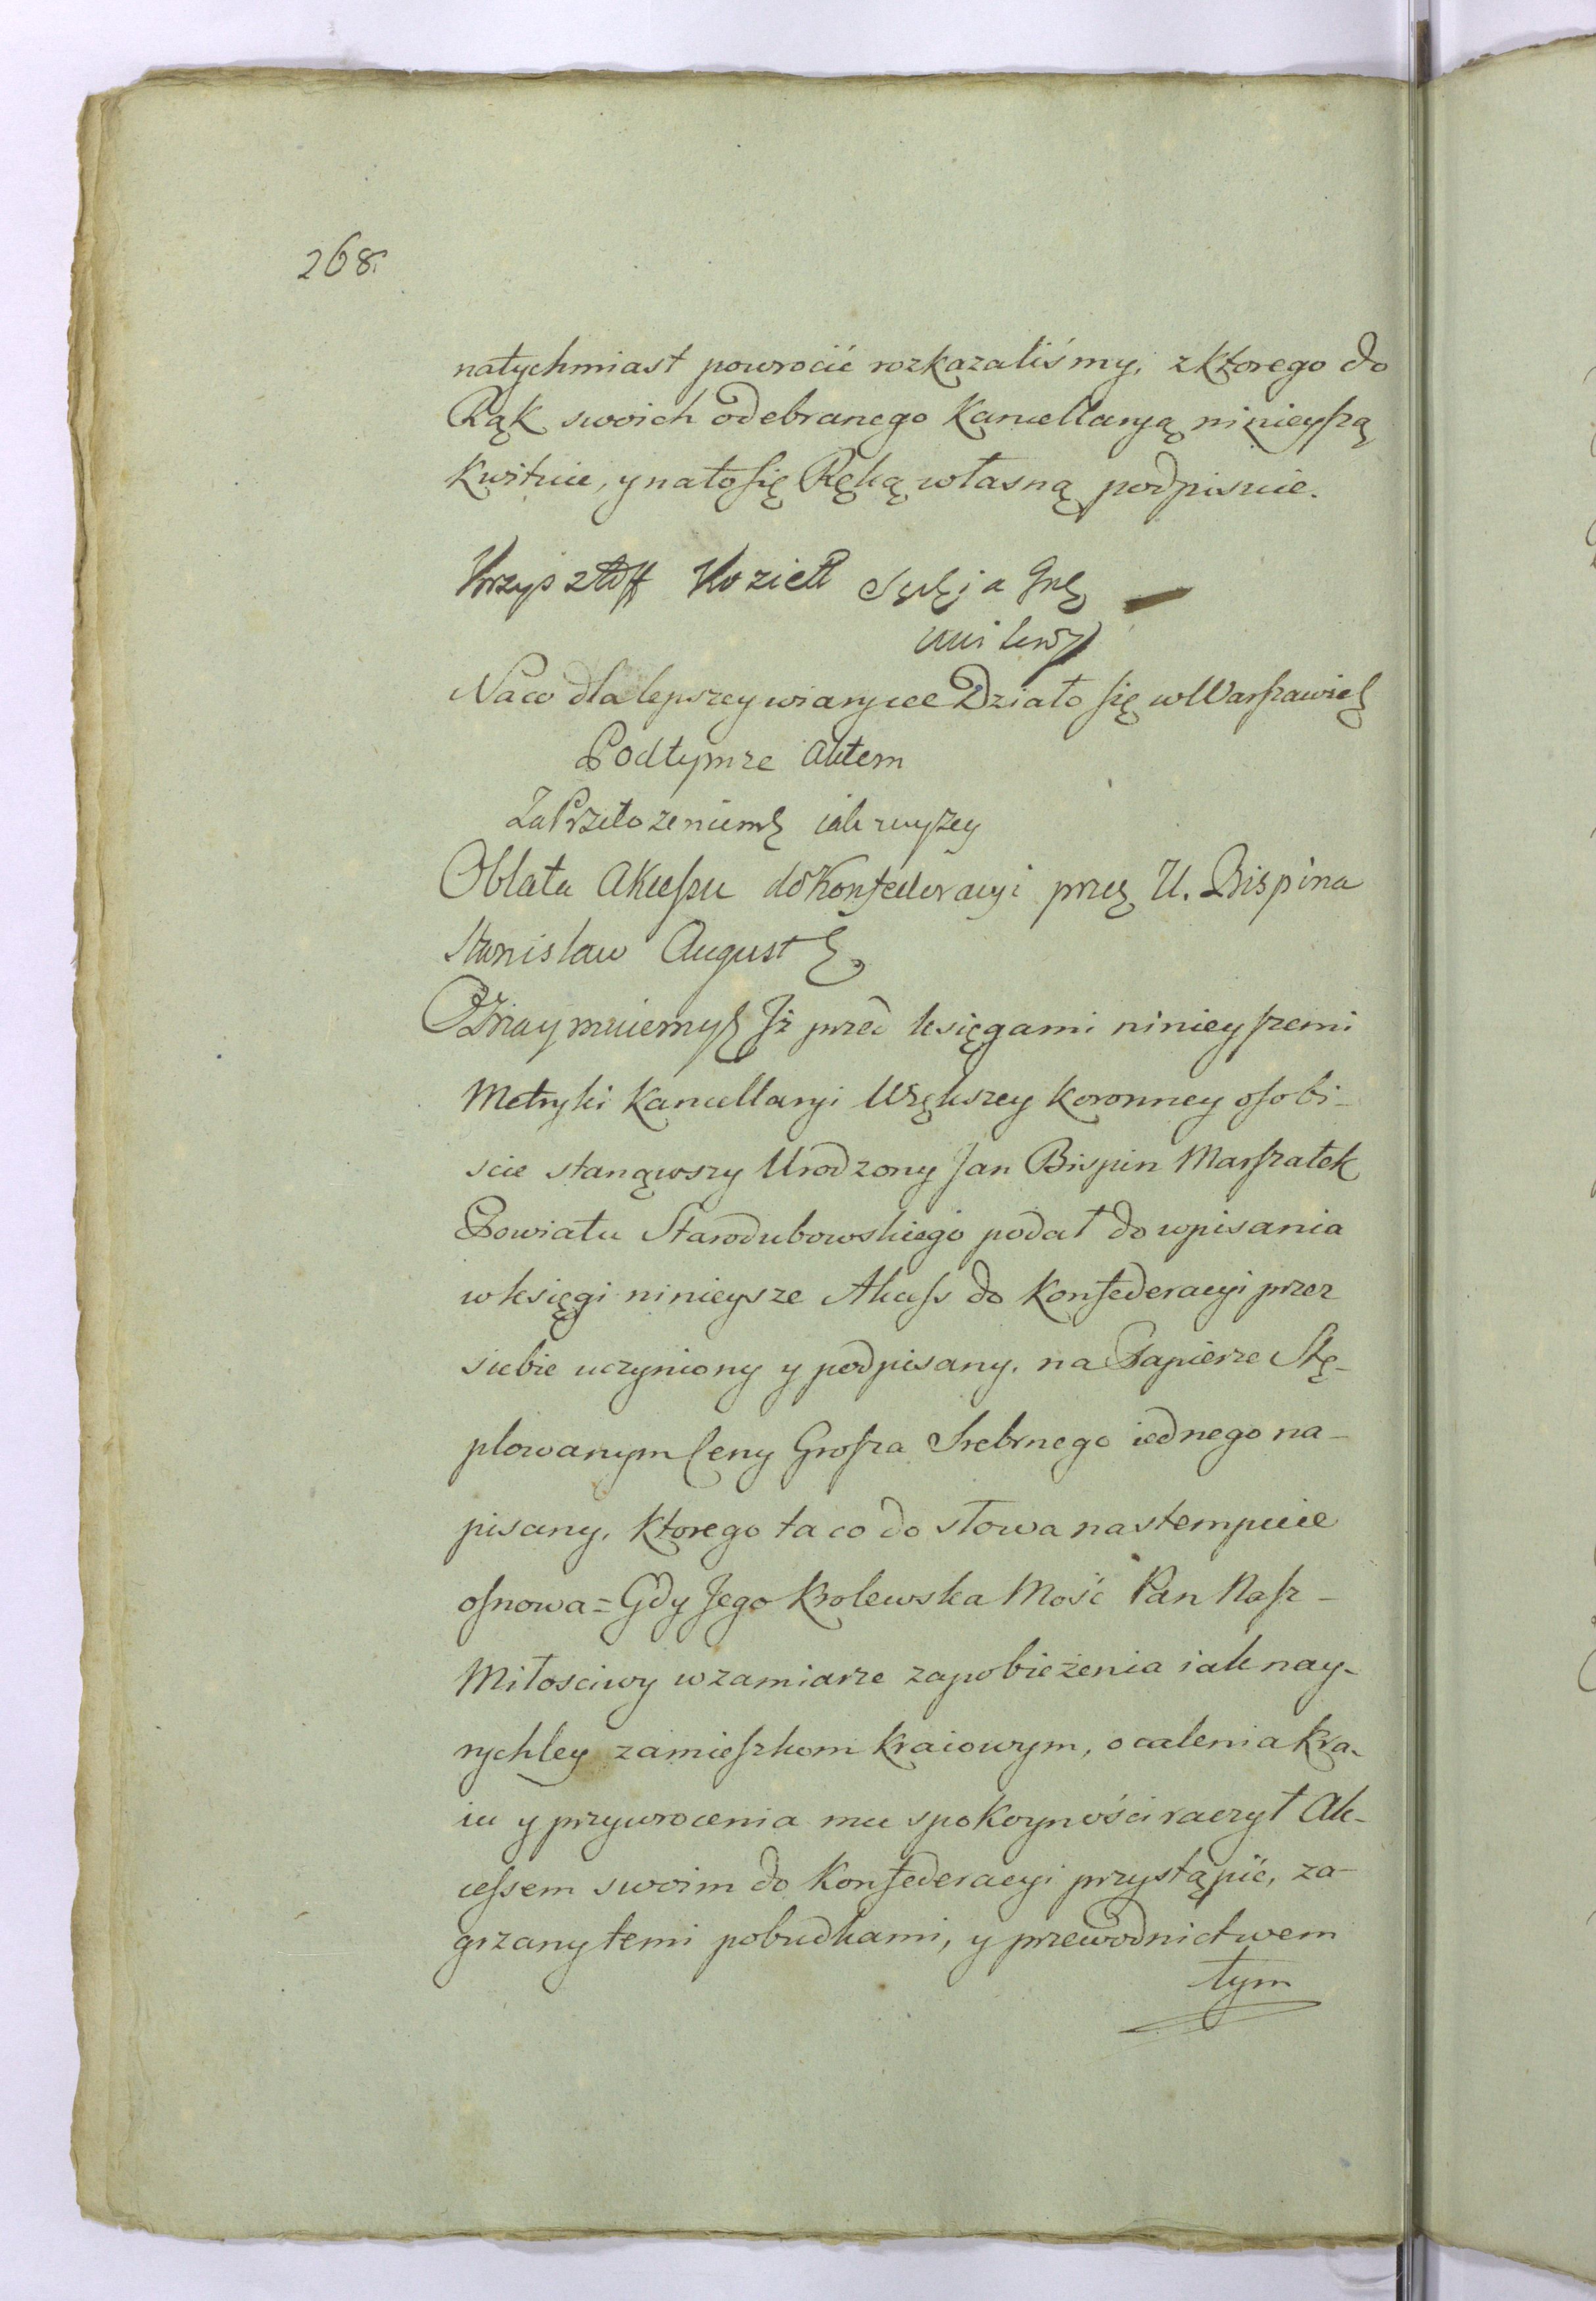 268.
natychmiast powrocić rozkazaliśmy, z ktorego do
Rąk swoich odebranego Kancellaryą ninieyszą
kwituie, y na to się Ręką własną podpisuie.
Krzysztoff Koziełł Sędzia
Na co dla lepszey wiary ettc Działo się w Warszawie
Pod tymże aktem
Za Przełożeniem iak wyżey
Oblata akcessu do Konfederacyi przez U. Bispina
Stanisław August
Oznaymuiemy Iż przed księgami ninieyszemi
Metryki Kancellaryi Większey Koronney osobi-
scie stanąwszy Urodzony Jan Bispin Marszałek
Powiatu Starodubowskiego podał do wpisania
w księgi ninieysze Akcess do Konfederacyi przez
siebie uczyniony y podpisany, na Papierze Stę-
plowanym Ceny Grosza Srebrnego iednego na-
pisany, ktorego ta co do słowa nastempuie
osnowa = Gdy Jego Krolewska Mość Pan Nasz -
Miłosciwy w zamiarze zapobieżenia iak nay-
rychley zamieszkom kraiowym, ocalenia kra-
iu y przywrocenia mu spokoyności raczył Ak-
cessem swoim do Konfederacyi przystąpić, za-
grzany temi pobudkami, y przewodnictwem
tym